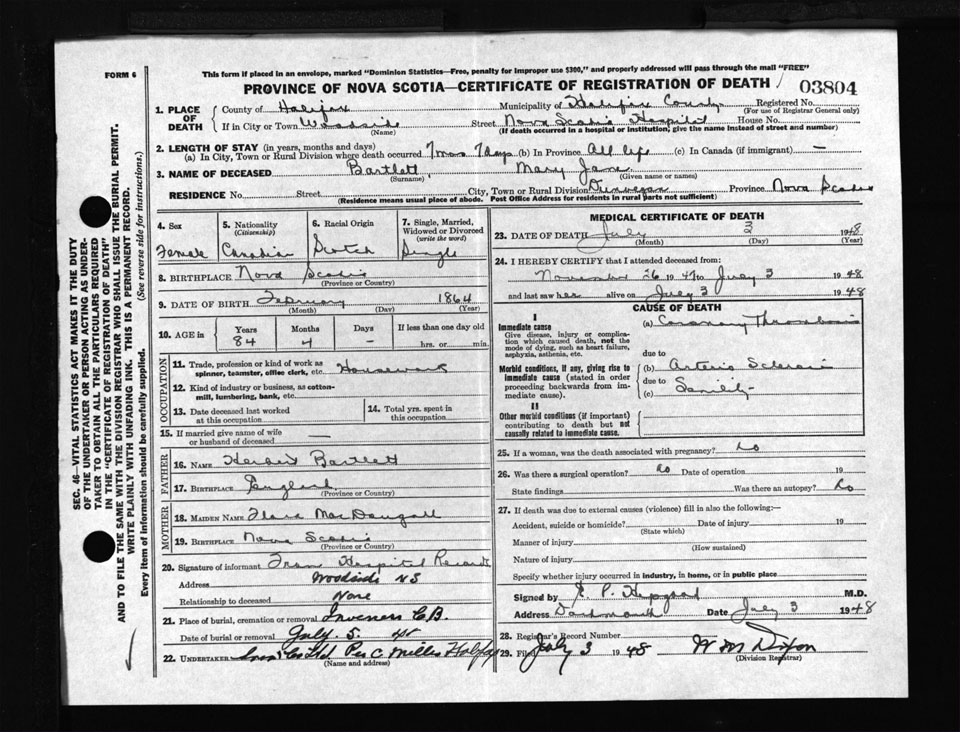 FORM 6
This form if placed in an envelope, marked "Dominion Statistics—Free, penalty for improper use $300," and properly addressed will pass through the mail "FREE"
PROVINCE OF NOVA SCOTIA—CERTIFICATE OF REGISTRATION OF DEATH
03804
1. PLACE OF DEATH
County of Halifax
Municipality of Halifax County
Registered No.
(For use of Registrar General only)
If in City or Town Woodside
(Name)
Street Nova Scotia Hospital House No.
(If death occurred in a hospital or institution, give the name instead of street and number)
2. LENGTH OF STAY (in years, months and days)
(a) In City, Town or Rural Division where death occurred 7 mos 7 days (b) In Province All life (c) In Canada (if immigrant) —
3. NAME OF DECEASED Bartlett, Mary Jane
(Surname) (Given name or names)
RESIDENCE No. Street City, Town or Rural Division Dunvegan Province Nova Scotia
(Residence means usual place of abode. Post Office Address for residents in rural parts not sufficient)
4. Sex
Female
5. Nationality
(Citizenship)
Canadian
6. Racial Origin
Scotch
7. Single, Married, Widowed or Divorced
(write the word)
Single
8. BIRTHPLACE Nova Scotia
(Province or Country)
9. DATE OF BIRTH February 1864
(Month) (Day) (Year)
10. AGE in
Years Months Days If less than one day old
84 4 - hrs. or min.
OCCUPATION
11. Trade, profession or kind of work as spinner, teamster, office clerk, etc. Housework
12. Kind of industry or business, as cotton-mill, lumbering, bank, etc.
13. Date deceased last worked at this occupation
14. Total yrs. spent in this occupation
15. If married give name of wife or husband of deceased —
FATHER
16. NAME Herbert Bartlett
17. BIRTHPLACE England
(Province or Country)
MOTHER
18. MAIDEN NAME Flora MacDougall
19. BIRTHPLACE Nova Scotia
(Province or Country)
20. Signature of informant From Hospital Records
Address Woodside NS
Relationship to deceased None
21. Place of burial, cremation or removal Inverness C.B.
Date of burial or removal July. 5. 48
22. UNDERTAKER Ltd Per C Millis Halifax
(Name and address)
MEDICAL CERTIFICATE OF DEATH
23. DATE OF DEATH July 3 1948
(Month) (Day) (Year)
24. I HEREBY CERTIFY that I attended deceased from:
November 26 1947 to July 3 1948
and last saw her alive on July 3 1948
CAUSE OF DEATH
I
Immediate cause
Give disease, injury or complication which caused death, not the mode of dying, such as heart failure, asphyxia, asthenia, etc.
(a) Coronary Thrombosis
due to
Morbid conditions, if any, giving rise to immediate cause (stated in order proceeding backwards from immediate cause).
(b) Arterio Sclerosis
due to
(c) Senility
II
Other morbid conditions (if important) contributing to death but not causally related to immediate cause.
25. If a woman, was the death associated with pregnancy? No
26. Was there a surgical operation? No Date of operation 19
State findings Was there an autopsy? No
27. If death was due to external causes (violence) fill in also the following:—
Accident, suicide or homicide? Date of injury 19
(State which)
Manner of injury
(How sustained)
Nature of injury
Specify whether injury occurred in industry, in home, or in public place
Signed by M.D.
Address Dartmouth Date July 3 1948
28. Registrar's Record Number
29. Filed July 3 1948 W M Dixon
(Division Registrar)
SEC. 46—VITAL STATISTICS ACT MAKES IT THE DUTY
OF THE UNDERTAKER OR PERSON ACTING AS UNDER-
TAKER TO OBTAIN ALL THE PARTICULARS REQUIRED
IN THE "CERTIFICATE OF REGISTRATION OF DEATH"
AND TO FILE THE SAME WITH THE DIVISION REGISTRAR WHO SHALL ISSUE THE BURIAL PERMIT.
WRITE PLAINLY WITH UNFADING INK. THIS IS A PERMANENT RECORD.
Every item of information should be carefully supplied. (See reverse side for instructions.)